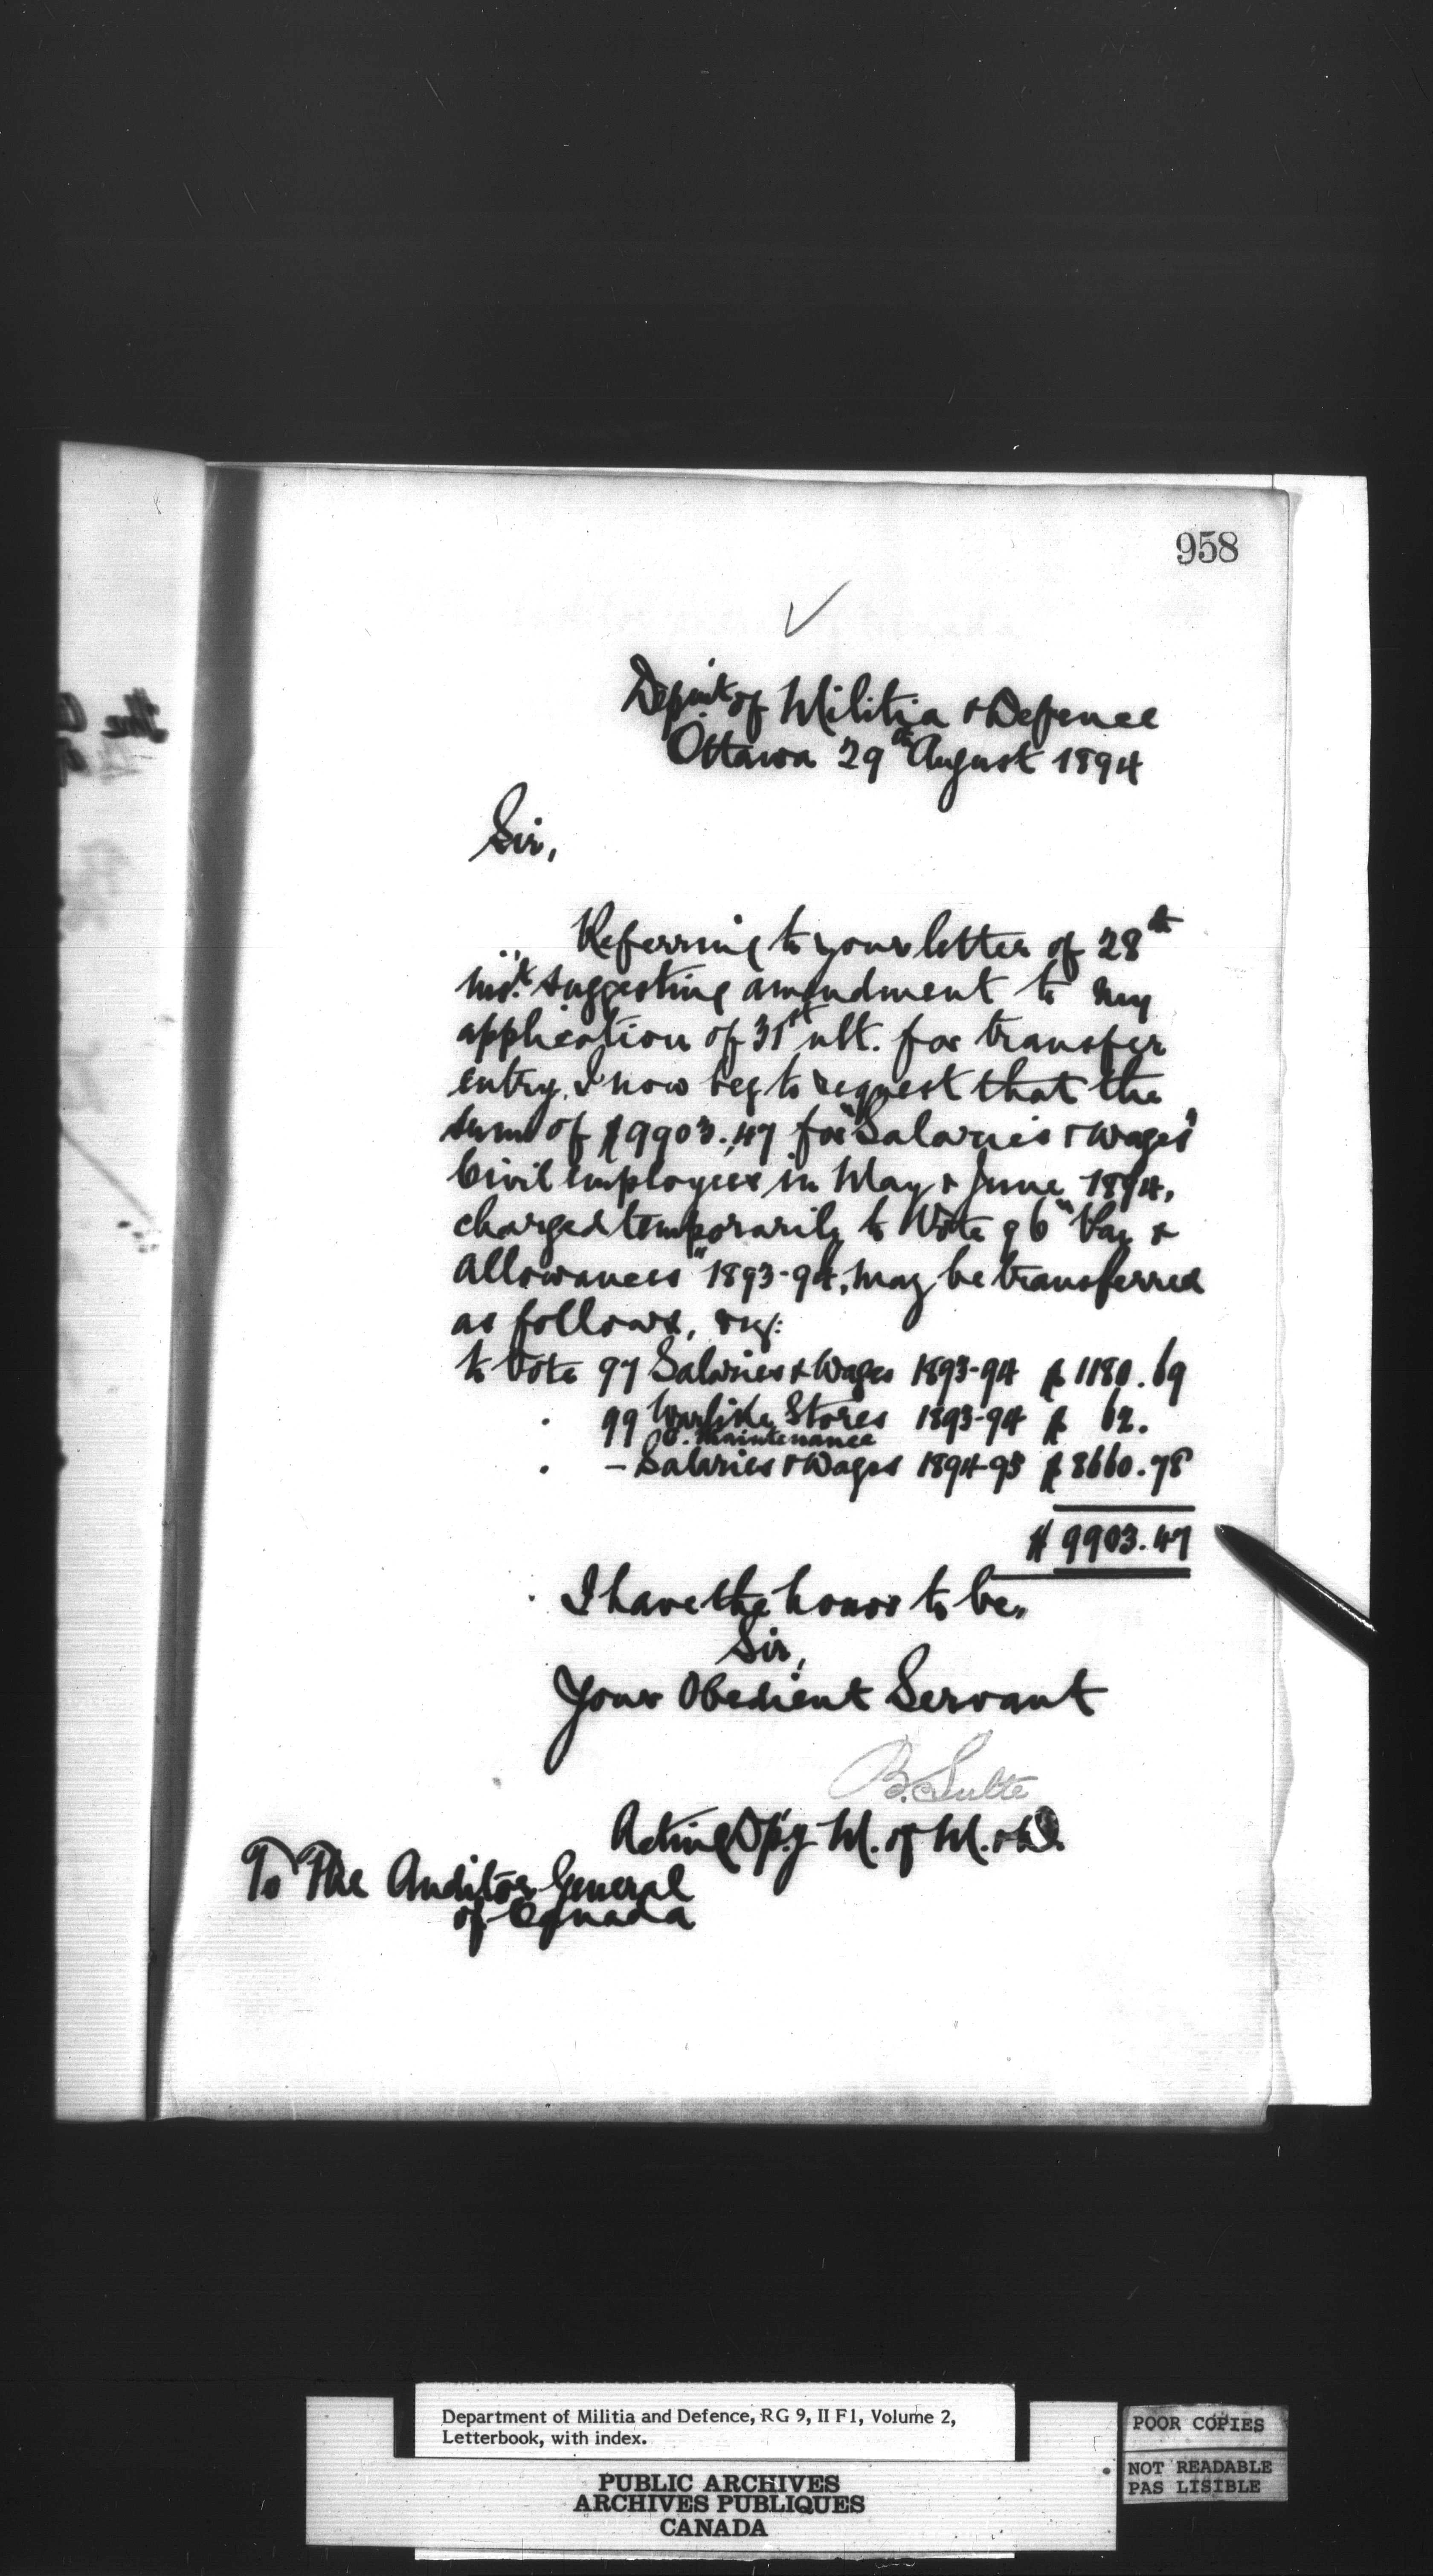 958
Depmt of Militia & Defence
Ottawa 29th August 1894
Sir,
Referring to your letter of 28th
inst. suggesting amendment to my
application of 31st ult. for transfer
entry, I now beg to request that the
sum of $9903.47 for "Salaries & Wages"
Civil Employees in May & June 1894,
charged temporarily to Vote 96 "Pay &
Allowances" 1893-94, may be transferred
as follows, viz:
to Vote 97 Salaries & Wages 1893-94 $ 1180.69
" 99 Warlike Stores 1893-94 $ 62.
Maintenance
" - Salaries & Wages 1894-95 $ 8660.78
$ 9903.47
I have the honor to be,
Sir,
Your Obedient Servant
B. Sulte
Acting Dpy M. of M. & D.
To The Auditor General
of Canada
Department of Militia and Defence, RG 9, II F1, Volume 2,
Letterbook, with index.
PUBLIC ARCHIVES
ARCHIVES PUBLIQUES
CANADA
POOR COPIES
NOT READABLE
PAS LISIBLE